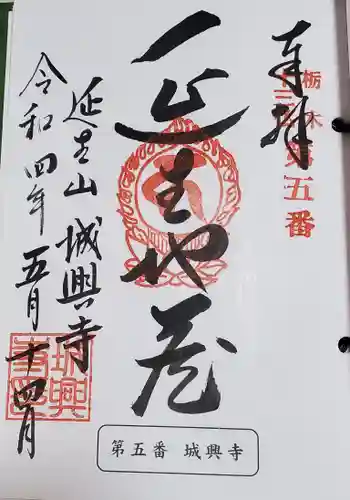 奉拝
栃木
第五番
延生地蔵
延生山 城興寺
令和四年五月十四日
城興
寺印
第五番 城興寺